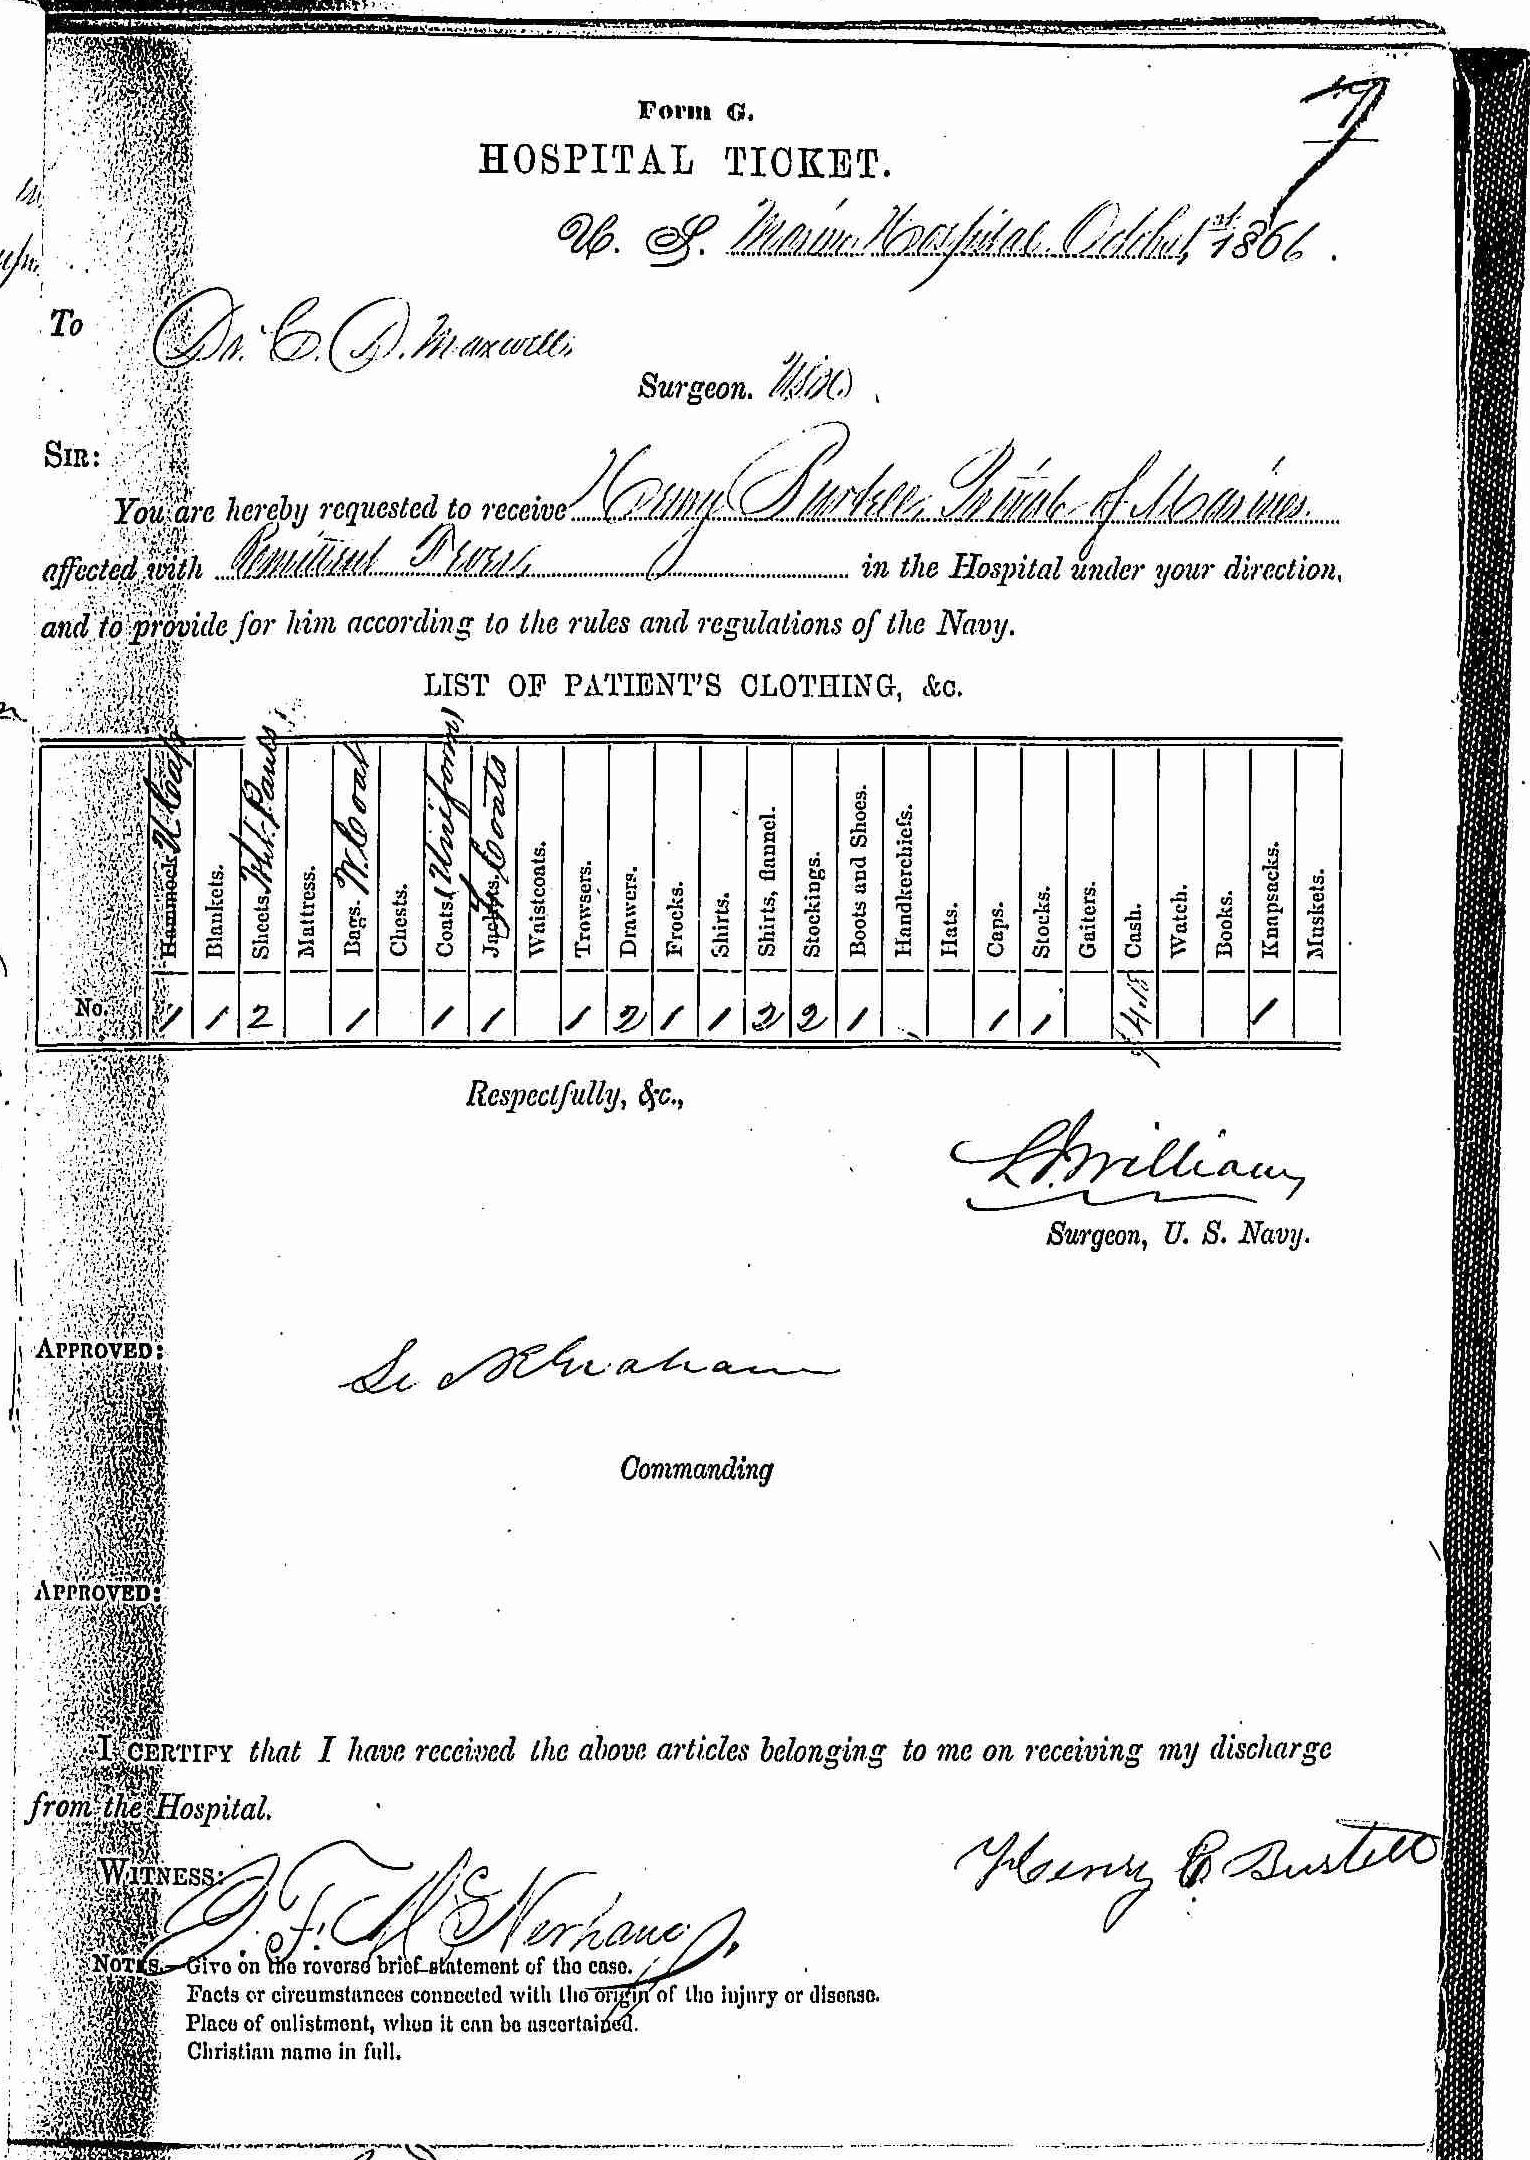 7
Form G.
HOSPITAL TICKET.
U. S. Marine Hospital October 1st 1866.
To Dr. C. D. Maxwell,
Surgeon. USN.
SIR:
You are hereby requested to receive Henry Private of Marines.
affected with Remittent Fever, in the Hospital under your direction,
and to provide for him according to the rules and regulations of the Navy.
LIST OF PATIENT'S CLOTHING, &c.
Hammock U Cap Blankets. Sheets. Pants Mattress. Bags. W. Coat Chests. Coats. (Uniform) Jackets. Coats Waistcoats. Trowsers. Drawers. Frocks. Shirts. Shirts, flannel. Stockings. Boots and Shoes. Handkerchiefs. Hats. Caps. Stocks. Gaiters. Cash. Watch. Books. Knapsacks. Muskets.
No. 1 1 2 1 1 1 1 2 1 1 2 2 1 1 1 1
Respectfully, &c.,
Williams
Surgeon, U. S. Navy.
APPROVED:
Graham
Commanding
APPROVED:
I CERTIFY that I have received the above articles belonging to me on receiving my discharge
from the Hospital.
WITNESS:
Henry C Bustell
NOTES.—Give on the reverse brief statement of the case.
Facts or circumstances connected with the origin of the injury or disease.
Place of enlistment, when it can be ascertained.
Christian name in full.